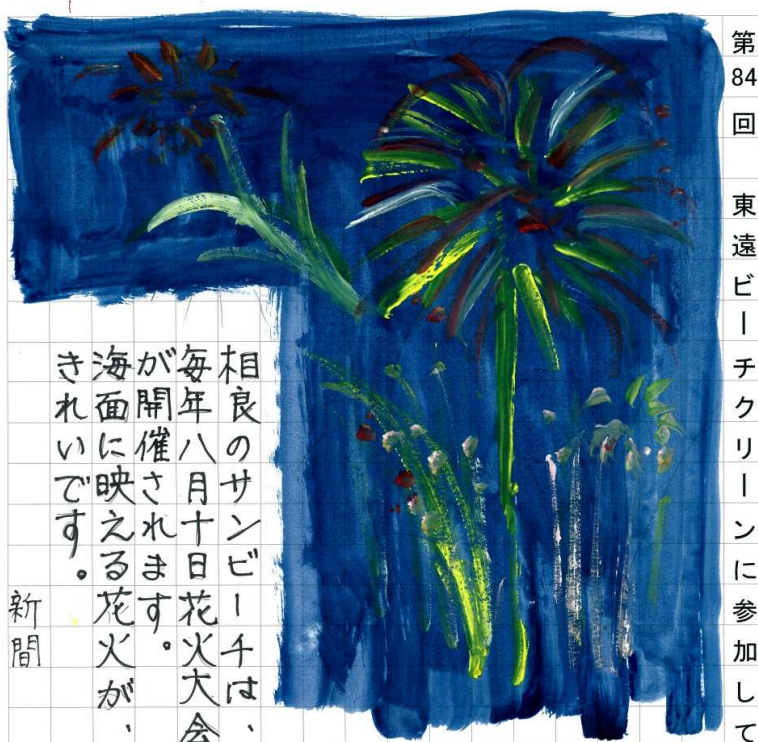 第84回 東遠ビーチクリーンに参加して
相良のサンビーチは、
毎年八月十日花火大会
が開催されます。
海面に映える花火が、
きれいです。
新間